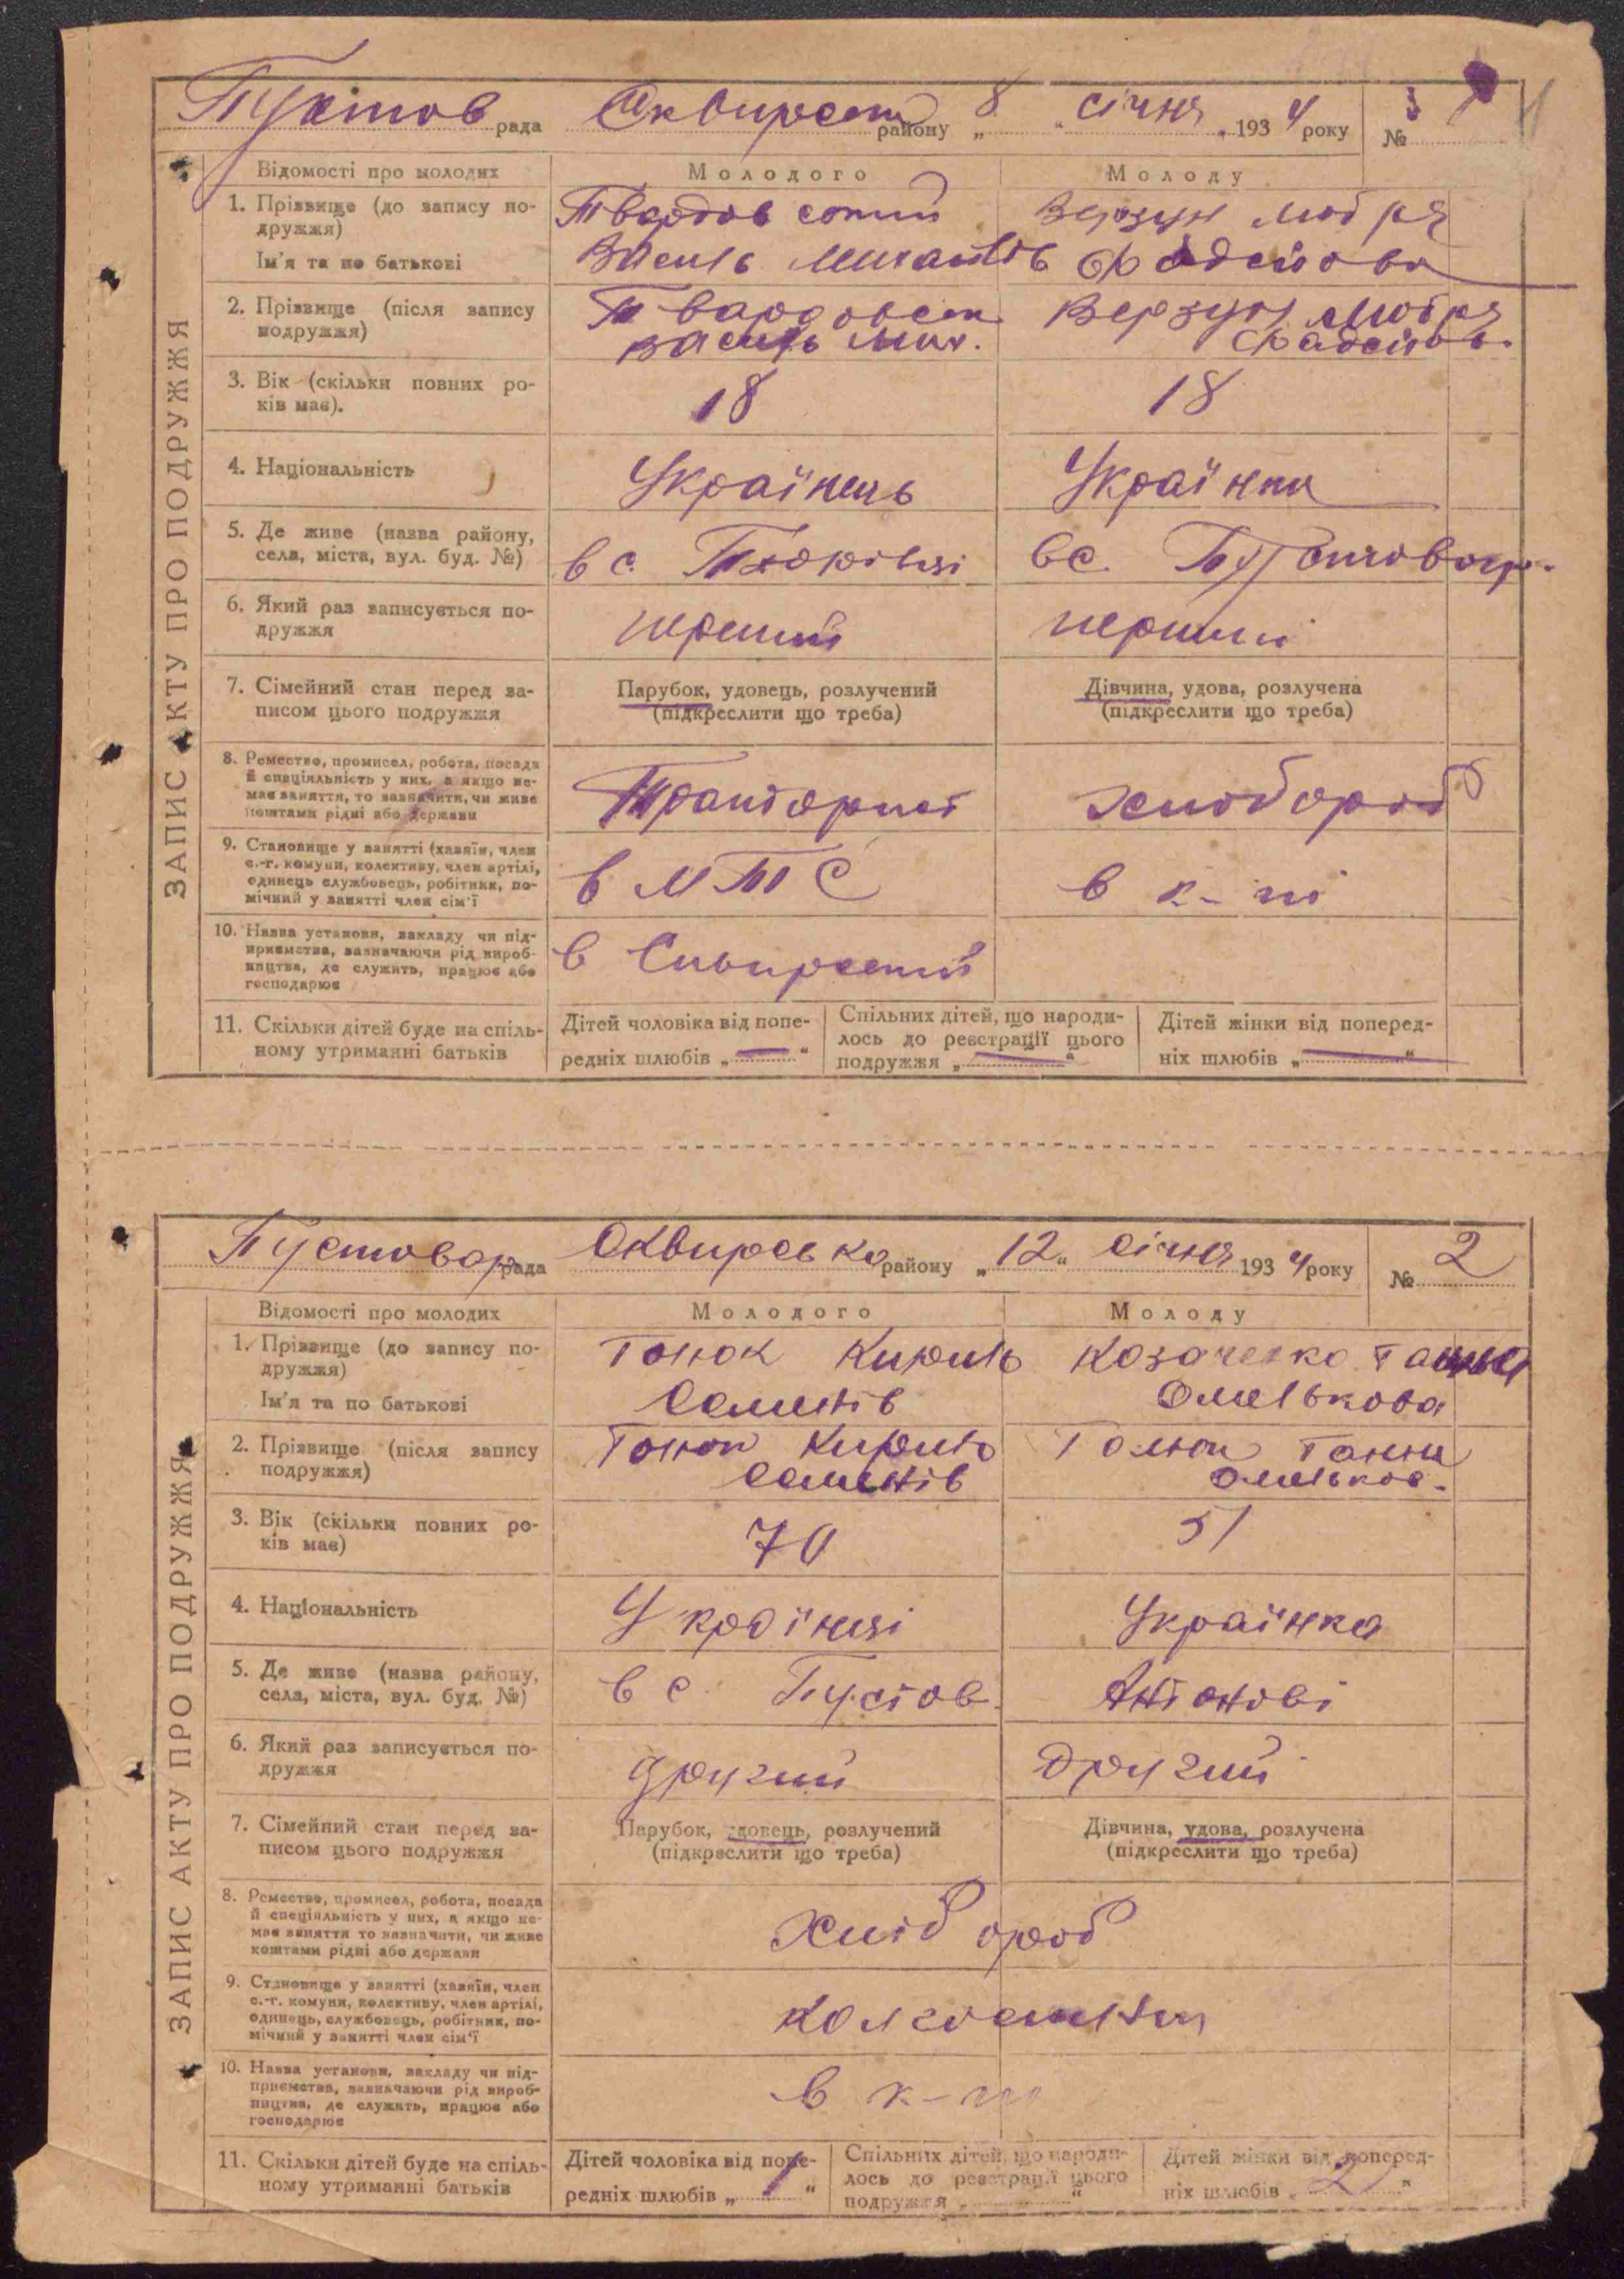 Пустов рада Сквирськ району „8“ січня 1934 року №
ЗАПИС АКТУ ПРО ПОДРУЖЖЯ
Відомості про молодих Молодого Молоду
1. Прізвище (до запису по-
дружжя)
Ім'я та по батькові
Твардовський
Василь Михайлів
Верзун
Фадейова
2. Прізвище (після запису
подружжя)
Твардовськ
Василь Мих.
Верзун
Фадейов.
3. Вік (скільки повних ро-
ків має). 18 18
4. Національність Українець Українка
5. Де живе (назва району,
села, міста, вул. буд. №) в с. в с. Пустовар.
6. Який раз записується по-
дружжя перший перший
7. Сімейний стан перед за-
писом цього подружжя
Парубок, удовець, розлучений
(підкреслити що треба)
Дівчина, удова, розлучена
(підкреслити що треба)
8. Ремество, промисел, робота, посада
й спеціяльність у них, а якщо не-
має заняття, то зазначити, чи живе
коштами рідні або держави
Тракторист хлібороб
9. Становище у занятті (хазяїн, член
с.-г. комуни, колективу, член артілі,
одинець службовець, робітник, по-
мічний у занятті член сім'ї
в МТС в к-пі
10. Назва установи, закладу чи під-
приємства, зазначаючи рід вироб-
ництва, де служить, працює або
господарює
в Сквирський
11. Скільки дітей буде на спіль-
ному утриманні батьків
Дітей чоловіка від попе-
редніх шлюбів „—“
Спільних дітей, що народи-
лось до реєстрації цього
подружжя „—“
Дітей жінки від поперед-
ніх шлюбів „—“
Пустовар рада Сквирсько району „12“ січня 1934 року № 2
ЗАПИС АКТУ ПРО ПОДРУЖЖЯ
Відомості про молодих Молодого Молоду
1. Прізвище (до запису по-
дружжя)
Ім'я та по батькові
Гонюк Кирило
Семенів
Козаченко Ганна
Омелькова
2. Прізвище (після запису
подружжя)
Гонюк Кирило
Семенів
Ганна
Омельков.
3. Вік (скільки повних ро-
ків має) 70 51
4. Національність Українці Українка
5. Де живе (назва району,
села, міста, вул. буд. №) в с. Пустов. Антонові
6. Який раз записується по-
дружжя другий другий
7. Сімейний стан перед за-
писом цього подружжя
Парубок, удовець, розлучений
(підкреслити що треба)
Дівчина, удова, розлучена
(підкреслити що треба)
8. Ремество, промисел, робота, посада
й спеціяльність у них, а якщо не-
має заняття то зазначити, чи живе
коштами рідні або держави
Хлібороб
9. Становище у занятті (хазяїн, член
с.-г. комуни, колективу, член артілі,
одинець, службовець, робітник, по-
мічний у занятті член сім'ї
10. Назва установи, закладу чи під-
приємства, зазначаючи рід вироб-
ництва, де служить, працює або
господарює
в к-пі
11. Скільки дітей буде на спіль-
ному утриманні батьків
Дітей чоловіка від попе-
редніх шлюбів „1“
Спільних дітей, що народи-
лось до реєстрації цього
подружжя „ “
Дітей жінки від поперед-
ніх шлюбів „2“